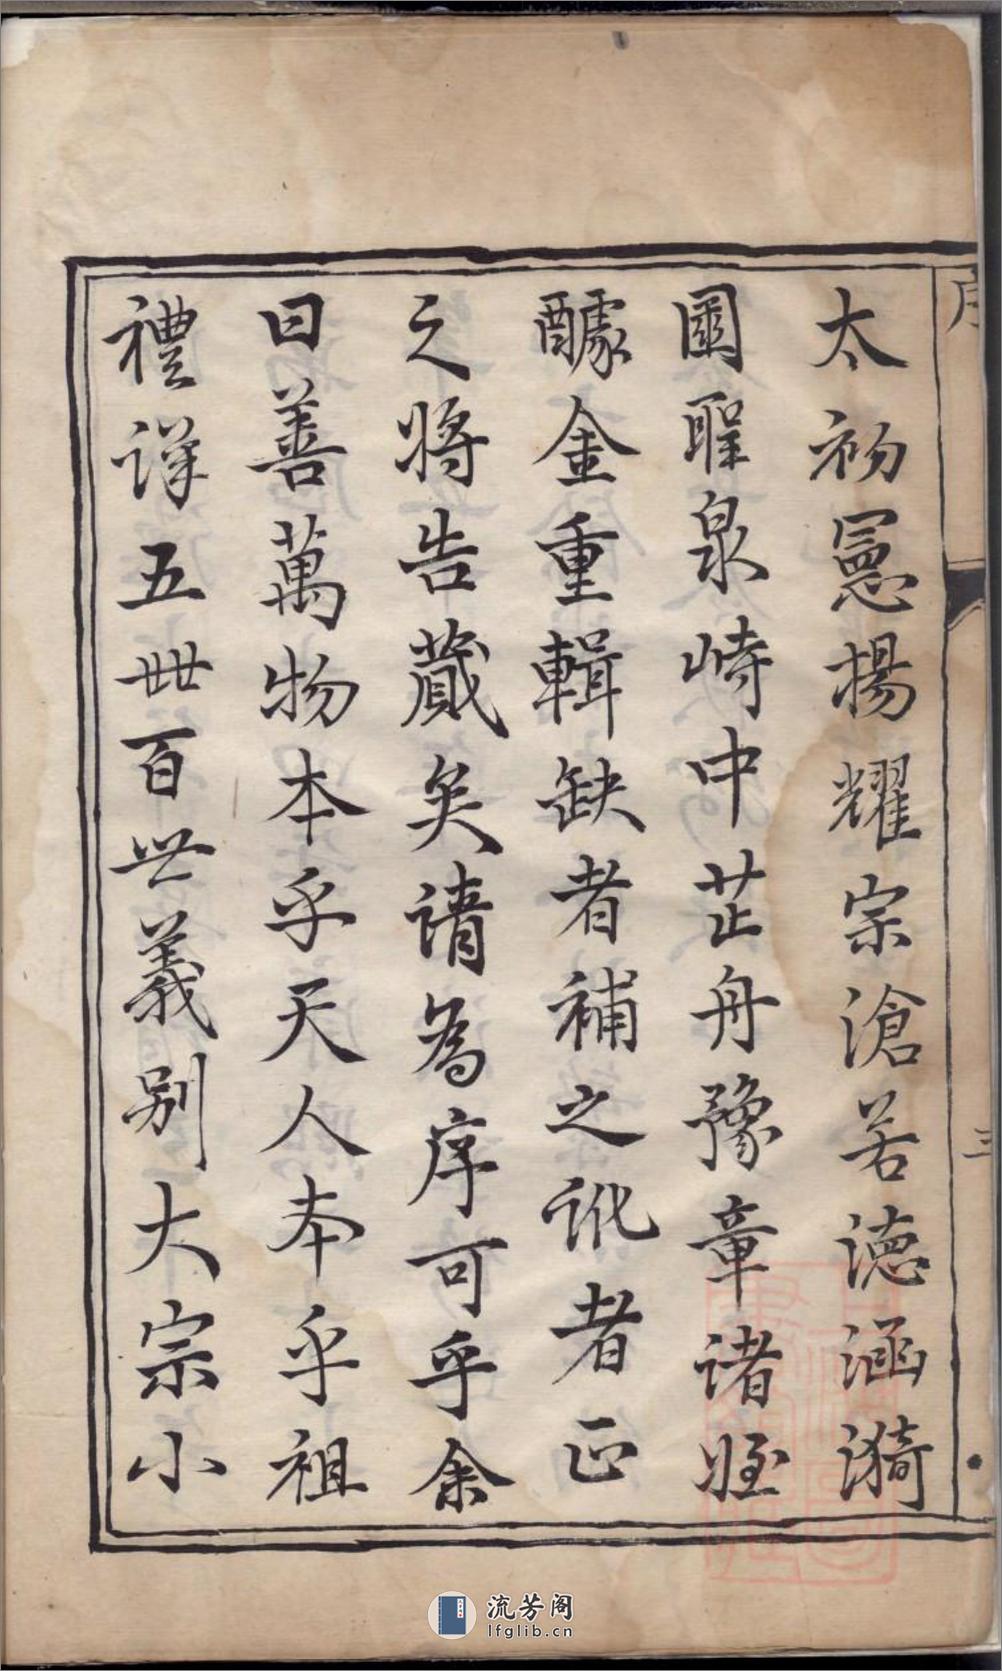 序
三
太初憲揚耀宗滄若德涵漪
園聖泉峙中芷舟豫章諸姪
醵金重輯缺者補之訛者正
之將告蕆矣請為序可乎余
曰善萬物本乎天人本乎祖
禮詳五世百世義別大宗小
流芳阁
lfglib.cn